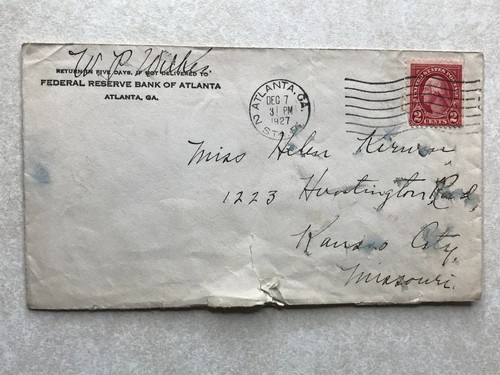 W. P. Wilkes
RETURN IN FIVE DAYS, IF NOT DELIVERED TO
FEDERAL RESERVE BANK OF ATLANTA
ATLANTA, GA.
ATLANTA, GA.
DEC 7
3 PM
1927
STA.
UNITED STATES POSTAGE
2 CENTS 2
Miss Helen Kirwan
1223 Huntington Rd,
Kansas City,
Missouri.